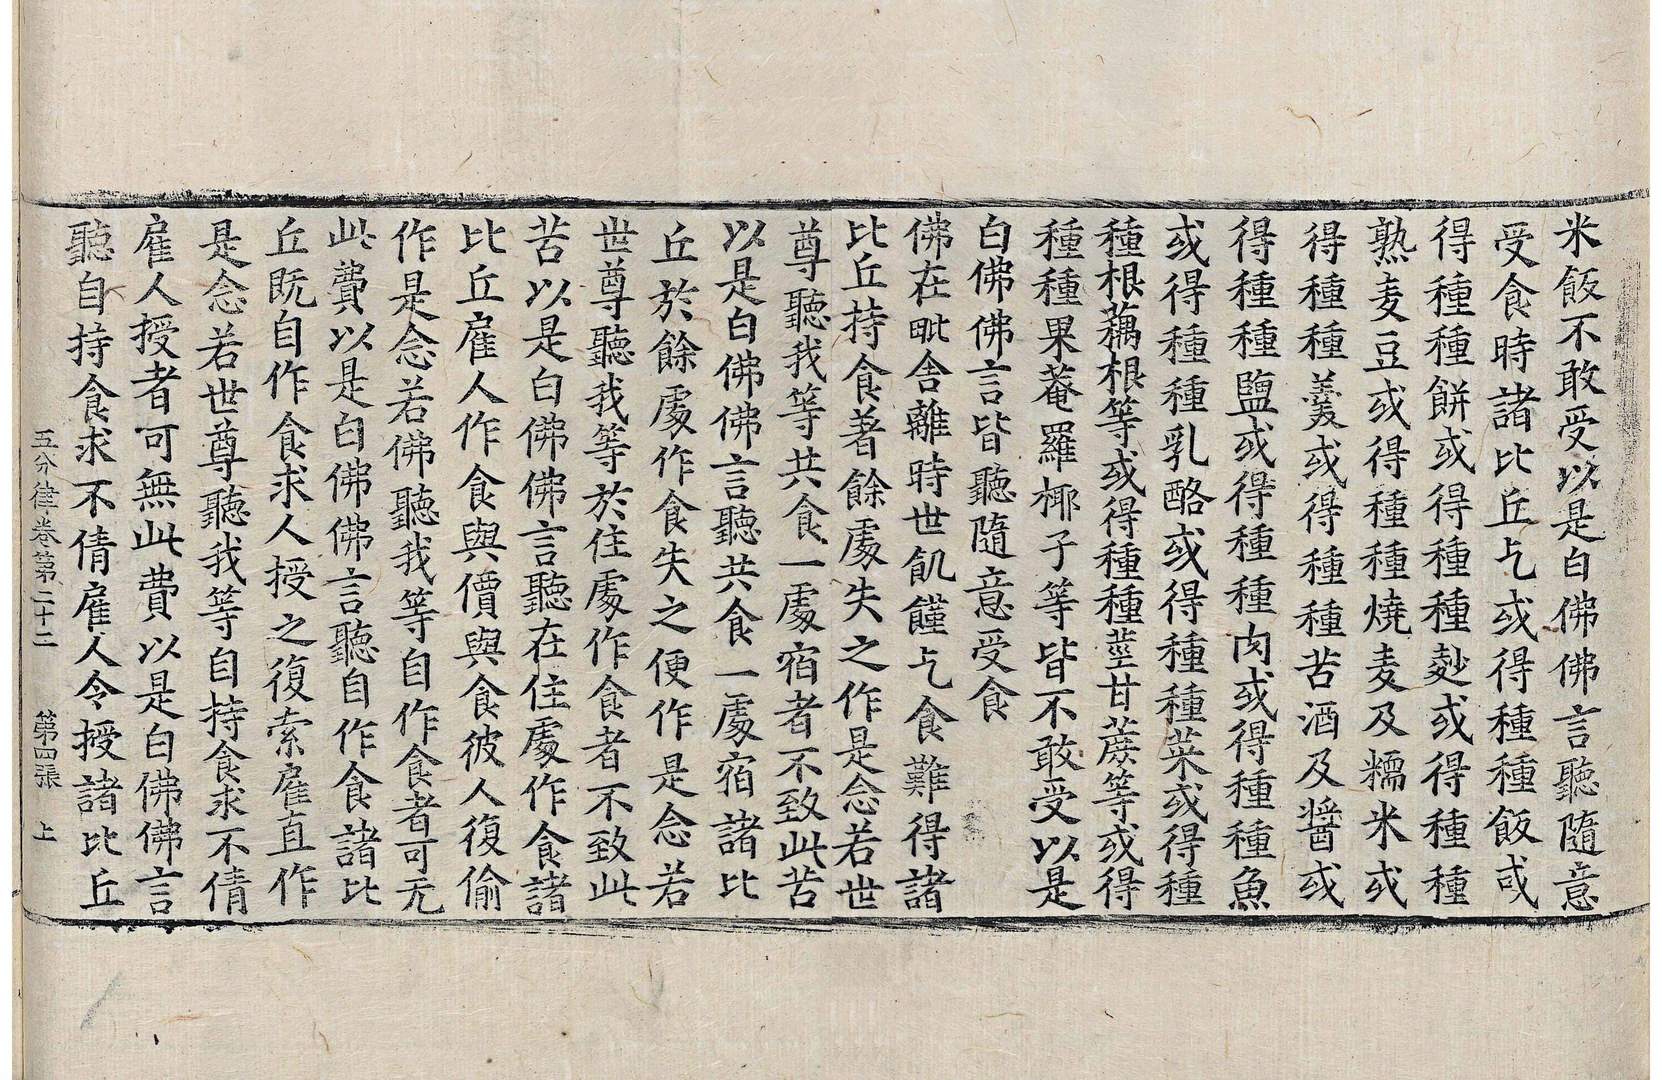 米飯不敢受以是白佛佛言聽隨意
受食時諸比丘乞或得種種飯或
得種種餅或得種種麨或得種種
熟麦豆或得種種燒麦及糯米或
得種種羹或得種種苦酒及醬或
得種種鹽或得種種肉或得種種魚
或得種種乳酪或得種種菜或得種
種根藕根等或得種種莖甘蔗等或得
種種果菴羅椰子等皆不敢受以是
白佛佛言皆聽隨意受食
佛在毗舎離時世飢饉乞食難得諸
比丘持食著餘處失之作是念若世
尊聽我等共食一處宿者不致此苦
以是白佛佛言聽共食一處宿諸比
丘於餘處作食失之便作是念若
世尊聽我等於住處作食者不致此
苦以是白佛佛言聽在住處作食諸
比丘雇人作食與價與食彼人復偷
作是念若佛聽我等自作食者可无
此費以是白佛佛言聽自作食諸比
丘既自作食求人授之復索雇直作
是念若世尊聽我等自持食求不倩
雇人授者可無此費以是白佛佛言
聽自持食求不倩雇人令授諸比丘
五分律卷第二十二 第四張 上